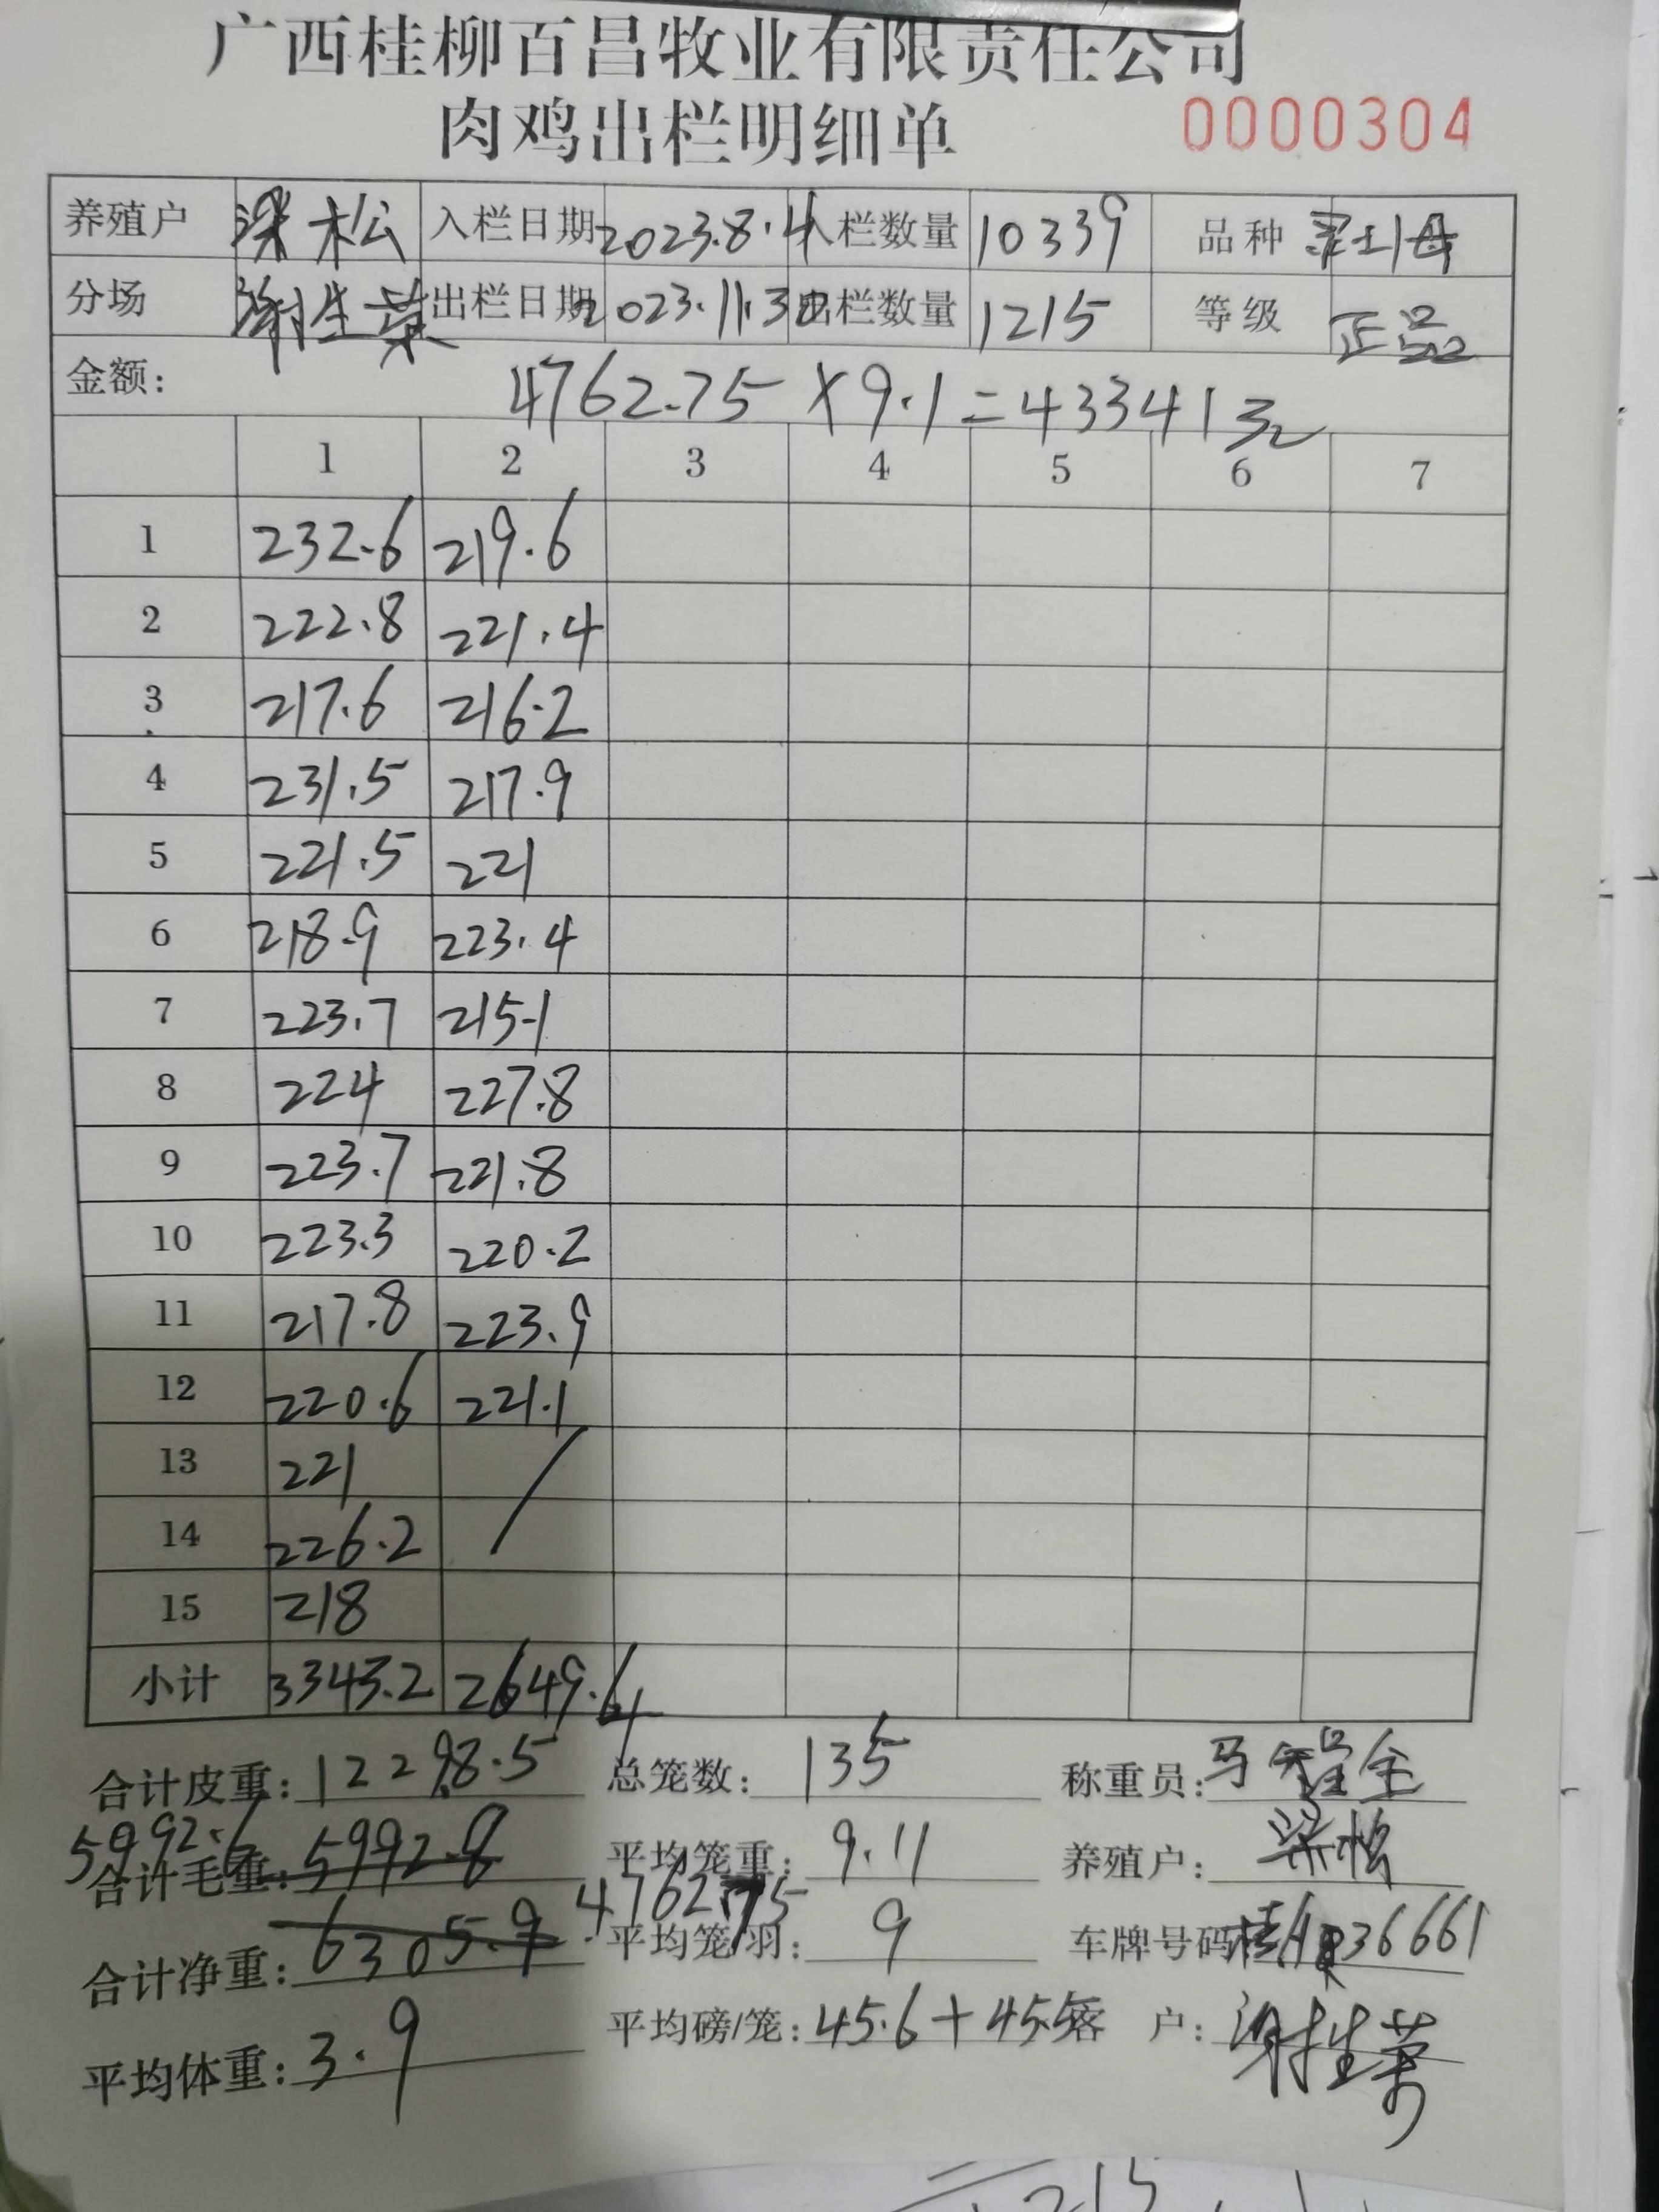 广西桂柳百昌牧业有限责任公司
肉鸡出栏明细单 0000304
养殖户 梁松 入栏日期 2023.8.4 入栏数量 10339 品种 土母
分场 谢生荣 出栏日期 2023.11.30 出栏数量 1215 等级 正品
金额: 4762.75 × 9.1 = 43341元
1 2 3 4 5 6 7
1 232.6 219.6
2 222.8 221.4
3 217.6 216.2
4 231.5 217.9
5 221.5 221
6 218.9 223.4
7 223.7 215.1
8 224 227.8
9 223.7 221.8
10 223.3 220.2
11 217.8 223.9
12 220.6 221.1
13 221 /
14 226.2
15 218
小计 3343.2 2649.4
合计皮重: 1229.85 总笼数: 135 称重员: 马全
5992.6
合计毛重: 5992.8 平均笼重: 9.11 养殖户: 梁松
4762.75
合计净重: 6305.9 平均笼/羽: 9 车牌号码: 桂36661
平均体重: 3.9 平均磅/笼: 45.6+45.5 客 户: 谢生荣